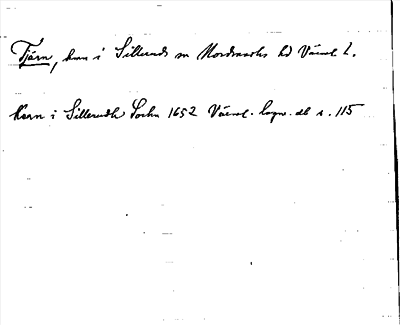 Tjärn, hmn i Silleruds sn Nordmarks hd Värml l.
Kärn i Sillerudh Sochn 1652 Värml. lagm. db s. 115